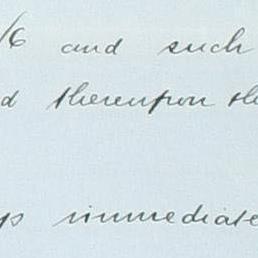 /6 and such
d thereupon the
ps immediate